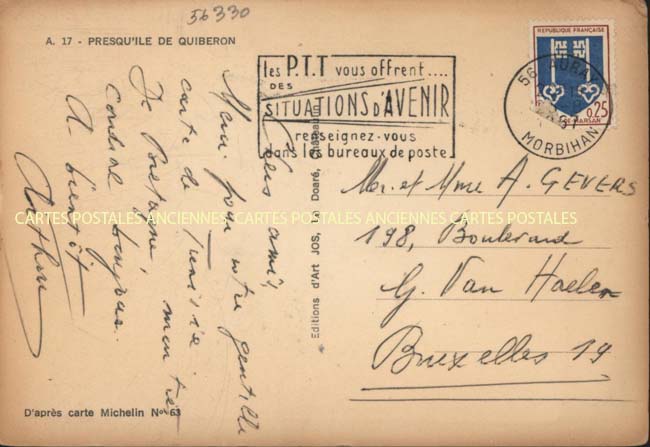 56330
A. 17 - PRESQU'ILE DE QUIBERON
les P.T.T vous offrent....
DES
SITUATIONS D'AVENIR
renseignez-vous
dans les bureaux de poste
REPUBLIQUE FRANÇAISE
0,25
MARSAN
56 AURAY
MORBIHAN
Chers amis,
Merci pour votre gentille
carte de Tunisie
De Bretagne, mon très
A bientôt
Editions d'Art JOS, Le Doaré, Châteaulin
Mr. et Mme A. GEVERS
198, Boulevard
G. Van Haelen
Bruxelles 19
CARTES POSTALES ANCIENNES CARTES POSTALES ANCIENNES CARTES POSTALES
D'après carte Michelin No 63